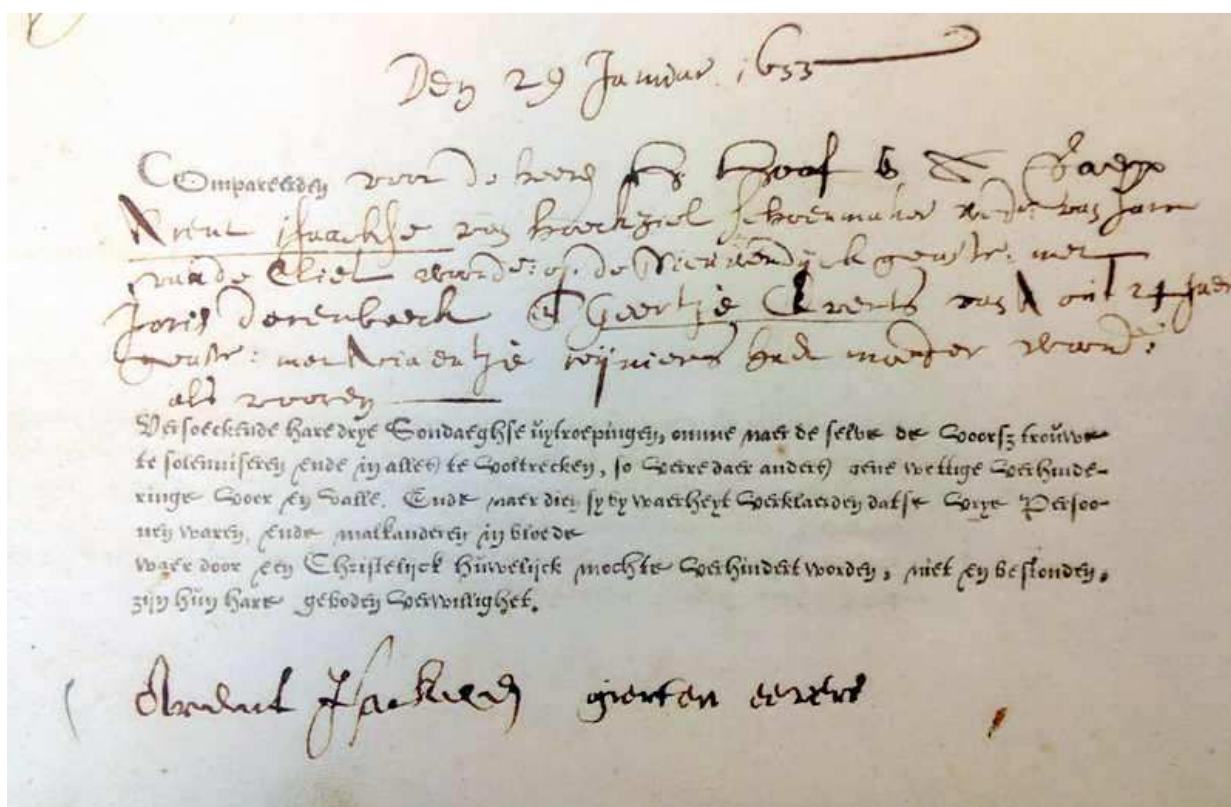 Den 29 Januar. 1653
Compareerden voor de heeren Hooft
Arent Isaackse van schoenmaker wedr. van Jann
vande Eliet woonde: op de Nieuwendijck geastr: met
Joris Dorenbeeck & Geertje Everts van A out 24 jaer
geastr: met Ariaentje reijniers haer moeder woond:
als vooren
Versoeckende hare drye Sondaeghse uytroepingen, omme naer de selve de voorsz trouwe
te solemniseren ende in alles te voltrecken, so verre daer anders gene wettige verhinde-
ringe voor en valle. Ende naer dien sy by waerheyt verklaerden datse vrye Persoo-
nen waren, ende malkanderen in bloede
waer door een Christelijck huwelijck mochte verhindert worden, niet en bestonden,
zijn hun hare geboden verwillighet.
Arent Isacksen gierten evers